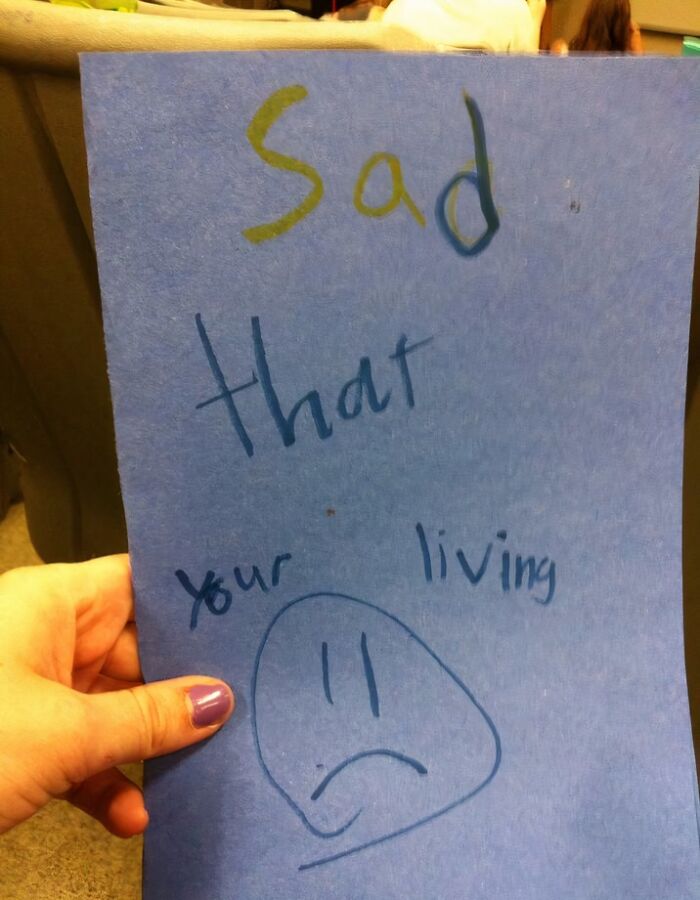 Sad
that
your living